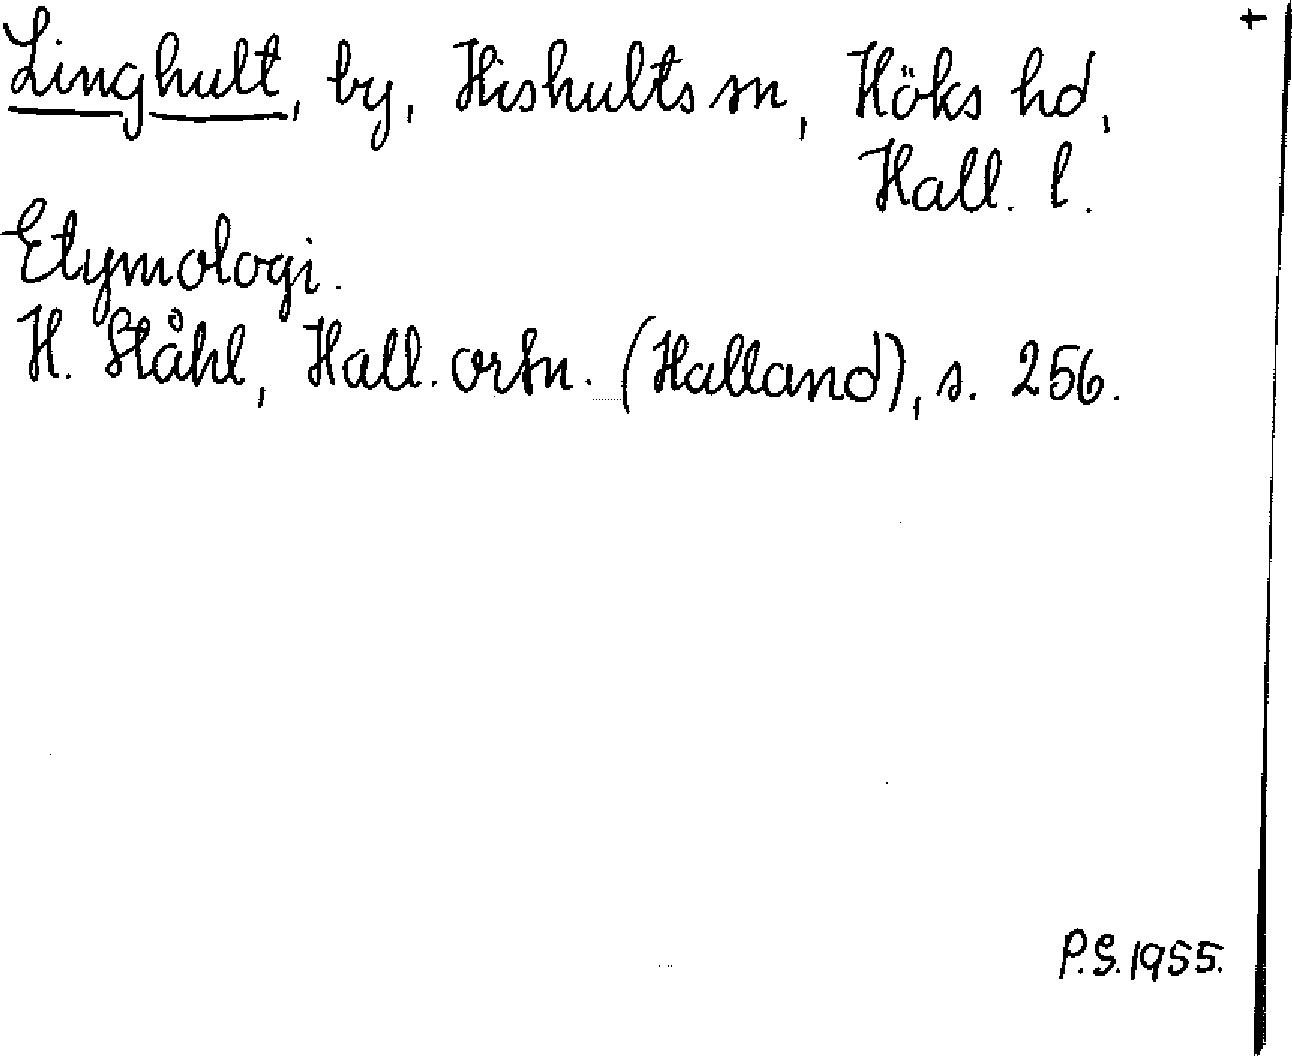 +
Linghult, by, Hishults sn, Höks hd,
Hall. l.
Etymologi.
H. Ståhl, Hall. ortn. (Halland), s. 256.
P.S. 1955.